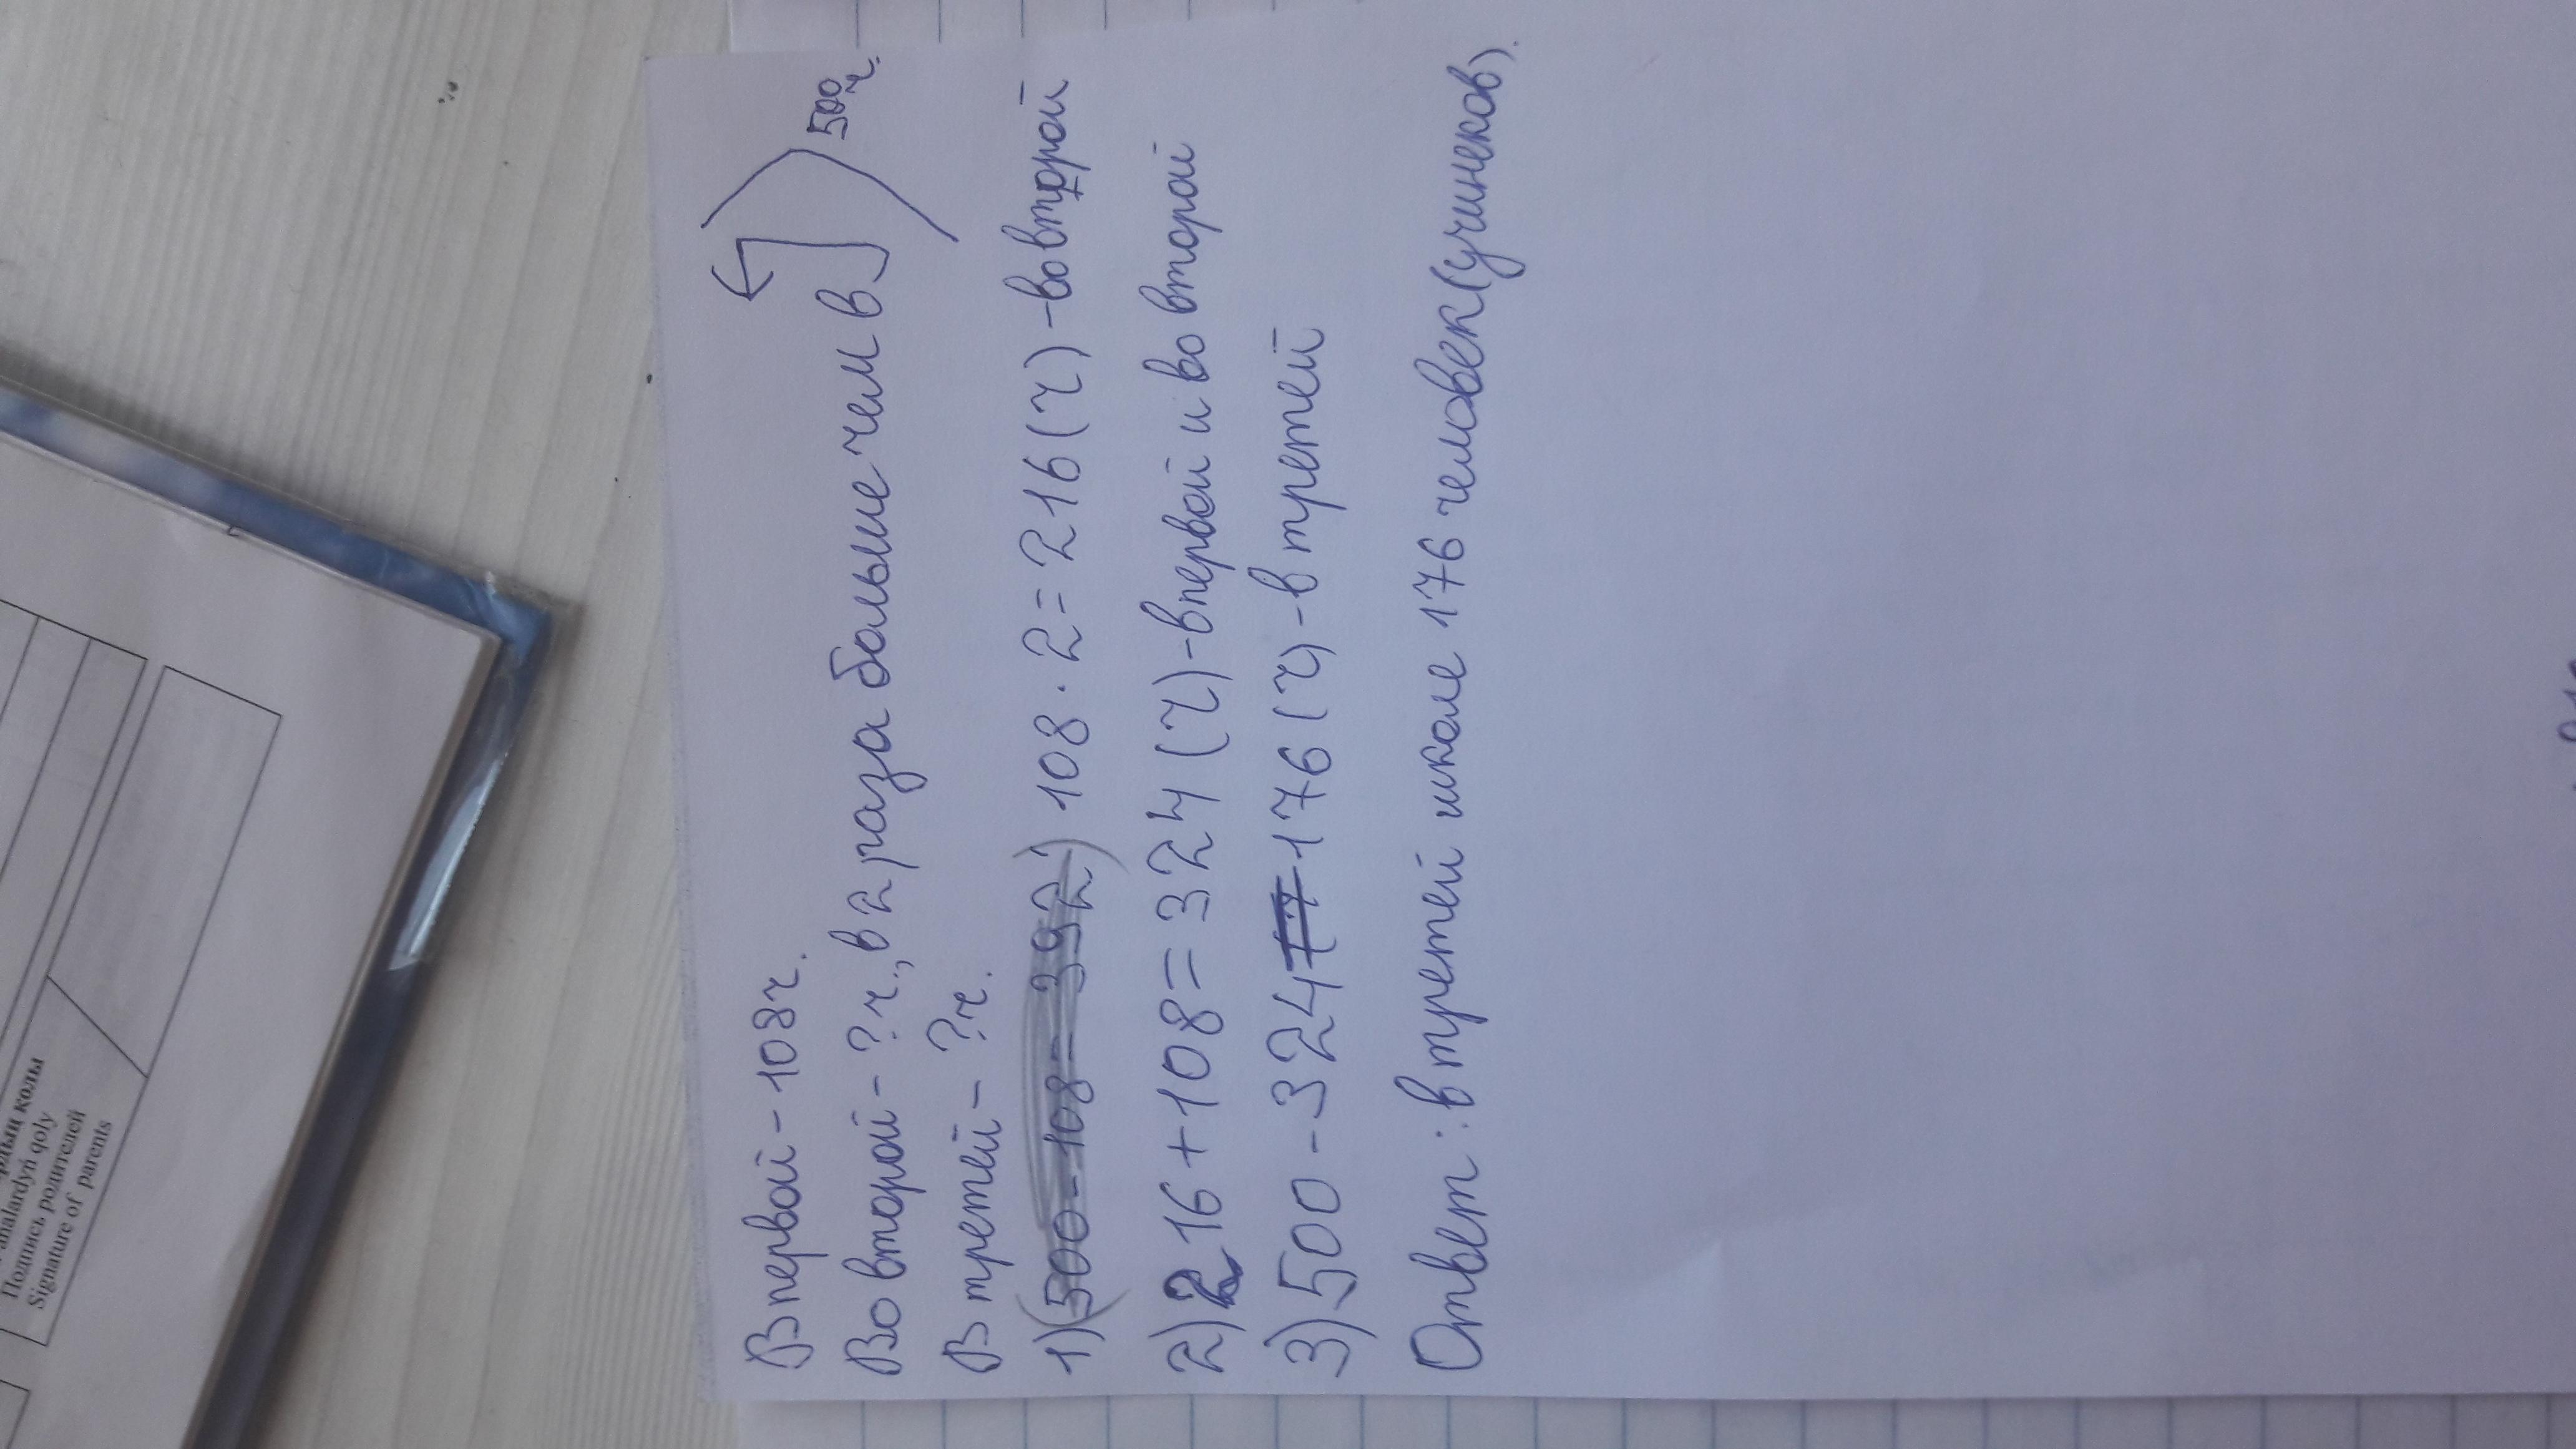 В первой - 108 ч.
Во второй - ? ч., в 2 раза больше чем в
500 ч.
В третей - ? ч.
1) (500 - 108 = 392) 108 · 2 = 216 (ч) - во второй
2) 216 + 108 = 324 (ч) - в первой и во второй
3) 500 - 324 = 176 (ч) - в третей
Ответ: в третей школе 176 человек (учинеков).
qoly
Подпись родителей
Signature of parents